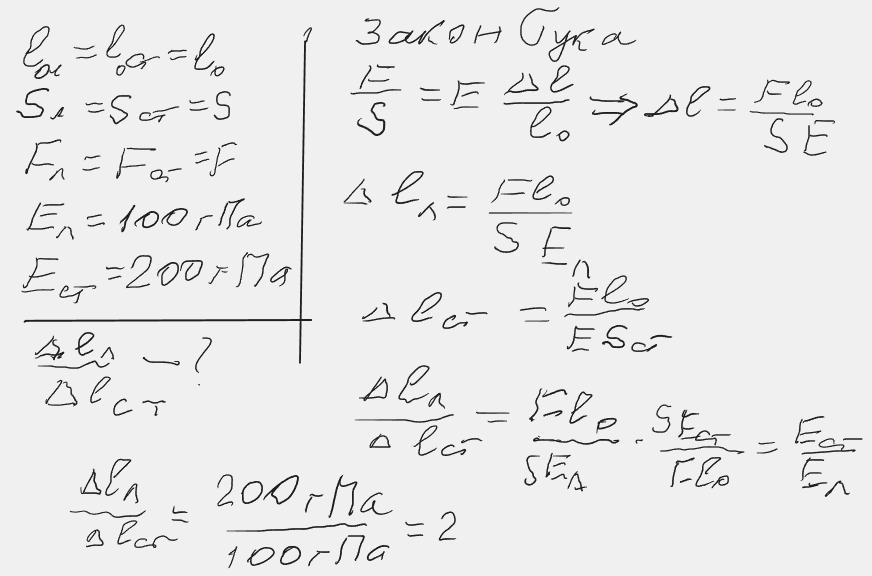 l₀л = l₀ст = l₀
Sл = Sст = S
Fл = Fст = F
Eл = 100 гПа
Eст = 200 гПа
Δlл / Δlст — ?
Закон Гука
F/S = E Δl/l₀ ⇒ Δl = Fl₀/SE
Δlл = Fl₀/SEл
Δlст = Fl₀/ESст
Δlл/Δlст = Fl₀/SEл · SEст/Fl₀ = Eст/Eл
Δlл/Δlст = 200 гПа/100 гПа = 2